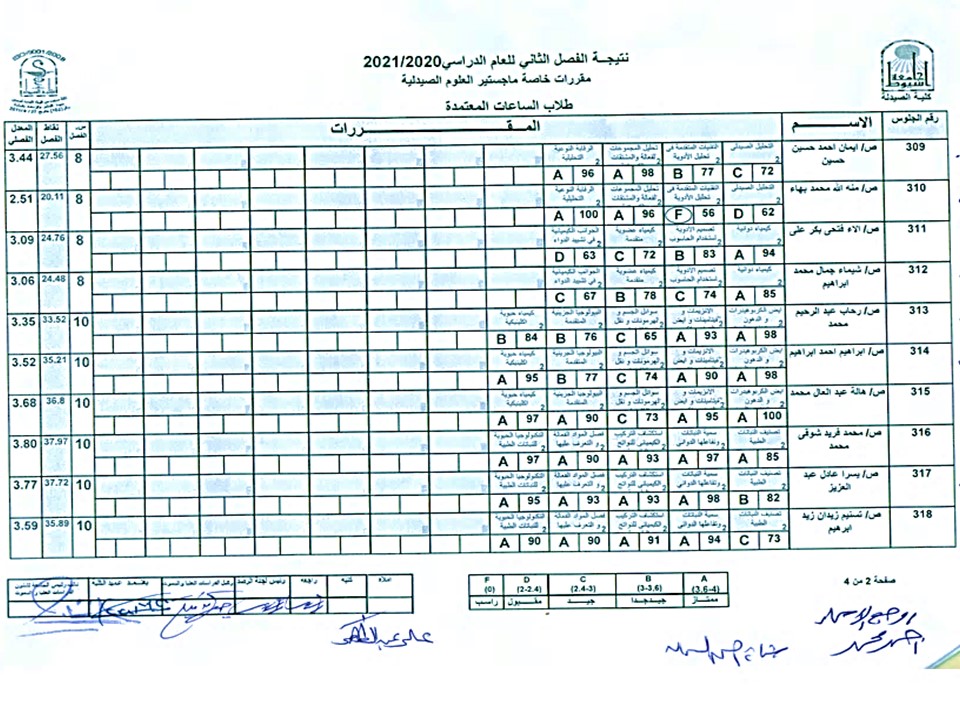 نتيجـة الفصل الثاني للعام الدراسي2021/2020
مقررات خاصة ماجستير العلوم الصيدلية
طلاب الساعات المعتمدة
كلية الصيدلة
رقم الجلوس الاســـــم المقـــــــــررات نقاط الفصل المعدل الفصلي
309 ص/ ايمان احمد حسين حسين التحليل الصيدلي 2 C 72 التقنيات المتقدمة فى تحليل الأدوية 2 B 77 تحليل المجموعات الفعالة والمشتقات 2 A 98 الرقابة النوعية التحليلية 2 A 96 8 27.56 3.44
310 ص/ منه الله محمد بهاء التحليل الصيدلي 2 D 62 التقنيات المتقدمة فى تحليل الأدوية 2 F 56 تحليل المجموعات الفعالة والمشتقات 2 A 96 الرقابة النوعية التحليلية 2 A 100 8 20.11 2.51
311 ص/ الاء فتحى بكر على كيمياء دوائية 2 A 94 تصميم الأدوية باستخدام الحاسوب 2 B 83 كيمياء عضوية متقدمة 2 C 72 الجوانب الكيميائية في تشييد الدواء 2 D 63 8 24.76 3.09
312 ص/ شيماء جمال محمد ابراهيم كيمياء دوائية 2 A 85 تصميم الأدوية باستخدام الحاسوب 2 C 74 كيمياء عضوية متقدمة 2 B 78 الجوانب الكيميائية في تشييد الدواء 2 C 67 8 24.48 3.06
313 ص/ رحاب عبد الرحيم محمد ايض الكربوهيدرات و الدهون 2 A 98 الانزيمات و الفيتامينات و ايض 2 A 93 سوائل الجسم و الهرمونات و نقل 2 C 65 البيولوجيا الجزيئية المتقدمة 2 B 76 كيمياء حيوية اكلينيكية 2 B 84 10 33.52 3.35
314 ص/ ابراهيم احمد ابراهيم ايض الكربوهيدرات و الدهون 2 A 98 الانزيمات و الفيتامينات و ايض 2 A 90 سوائل الجسم و الهرمونات و نقل 2 C 74 البيولوجيا الجزيئية المتقدمة 2 B 77 كيمياء حيوية اكلينيكية 2 A 95 10 35.21 3.52
315 ص/ هالة عبد العال محمد ايض الكربوهيدرات و الدهون 2 A 100 الانزيمات و الفيتامينات و ايض 2 A 95 سوائل الجسم و الهرمونات و نقل 2 C 73 البيولوجيا الجزيئية المتقدمة 2 A 90 كيمياء حيوية اكلينيكية 2 A 97 10 36.8 3.68
316 ص/ محمد فريد شوقى محمد تصنيف النباتات الطبية 2 A 85 سمية النباتات وتفاعلها الدوائي 2 A 97 استكشاف التركيب الكيميائى للنواتج 2 A 93 فصل المواد الفعالة و التعرف عليها 2 A 90 التكنولوجيا الحيوية للنباتات الطبية 2 A 97 10 37.97 3.80
317 ص/ يسرا عادل عبد العزيز تصنيف النباتات الطبية 2 B 82 سمية النباتات وتفاعلها الدوائي 2 A 98 استكشاف التركيب الكيميائى للنواتج 2 A 93 فصل المواد الفعالة و التعرف عليها 2 A 93 التكنولوجيا الحيوية للنباتات الطبية 2 A 95 10 37.72 3.77
318 ص/ تسنيم زيدان زيد ابرهيم تصنيف النباتات الطبية 2 C 73 سمية النباتات وتفاعلها الدوائي 2 A 94 استكشاف التركيب الكيميائى للنواتج 2 A 91 فصل المواد الفعالة و التعرف عليها 2 A 90 التكنولوجيا الحيوية للنباتات الطبية 2 A 90 10 35.89 3.59
صفحة 2 من 4
A B C D F
(3.6-4) (3-3.6) (2.4-3) (2-2.4) (0)
ممتاز جيدجدا جيـــد مقبـول راسب
املاه كتبه راجعه رئيس لجنة الرصد وكيل الدراسات العليا والبحوث يعتمد عميد الكلية